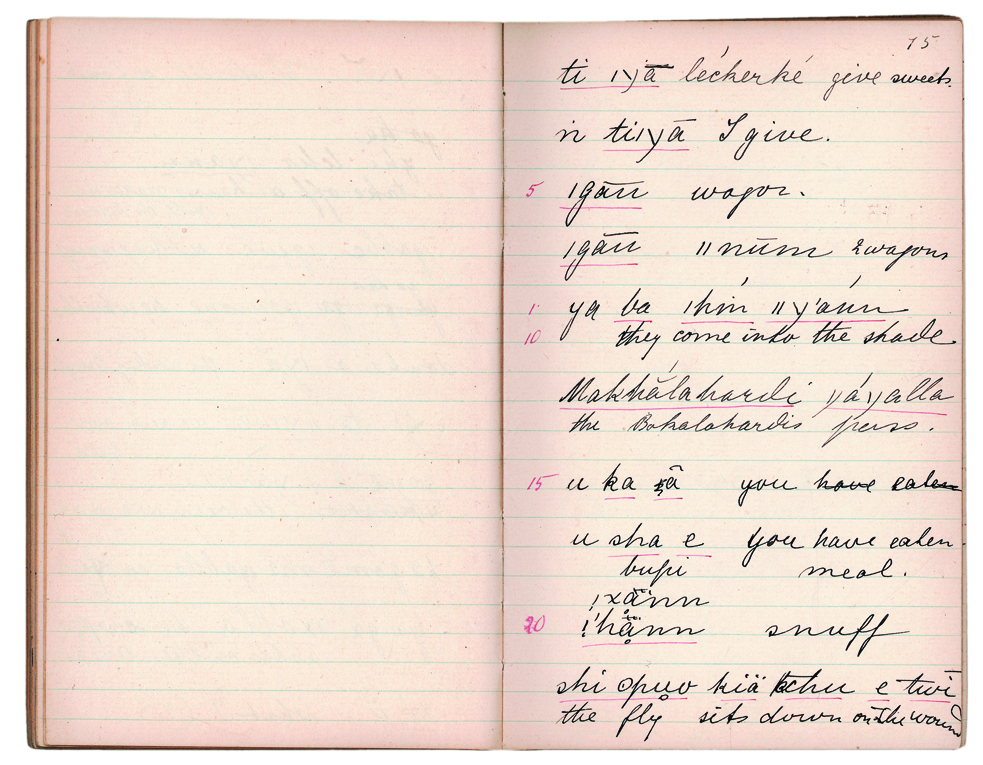 75
ti ıɣā léckerké give sweets.
n tiıɣā I give.
5 ıgān wagon.
ıgān ıınūm 2 wagons
1 ya ba ıhín ııɣ'ánn
10 they come into the shade
Makhālahardi ɣáɣalla
the Bakalahardis pass.
15 u ka ʂâ you have eaten
u sha e you have eaten
bupi meal.
!xānn
20 !'hånn snuff
shi opuo kïä tchu e twi
the fly sits down on the wound